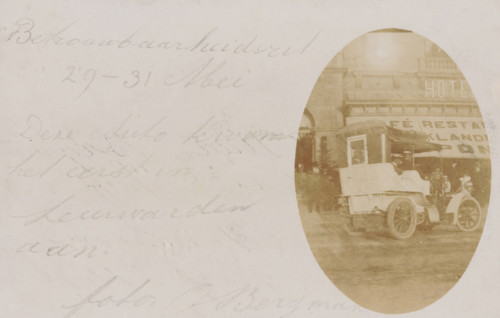 Betrouwbaarheidsrit
29-31 Mei
Deze Auto kwam
het eerst in
Leeuwarden
aan.
foto B Bergman
HOT
FÉ RESTA
KLAND
PON